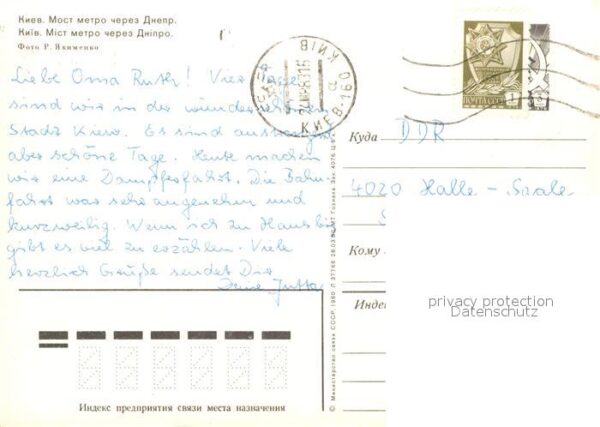 Киев. Мост метро через Днепр.
Київ. Міст метро через Дніпро.
Фото Р. Якименко
Liebe Oma Ruth! Vier Tage
sind wir in der wunderschönen
Stadt Kiew. Es sind anstrengende
aber schöne Tage. Heute machen
wir eine Dampferfahrt. Die Bahn-
fahrt war sehr angenehm und
kurzweilig. Wenn ich zu Hause bin
gibt es viel zu erzählen. Viele
herzlich Grüße sendet Dir
Deine Jutta
КИЇВ
КИЕВ-160
ПОЧТА СССР
Куда
DDR
4020 Halle - Saale
Кому
Инде
privacy protection
Datenschutz
© Министерство связи СССР, 1980
Индекс предприятия связи места назначения